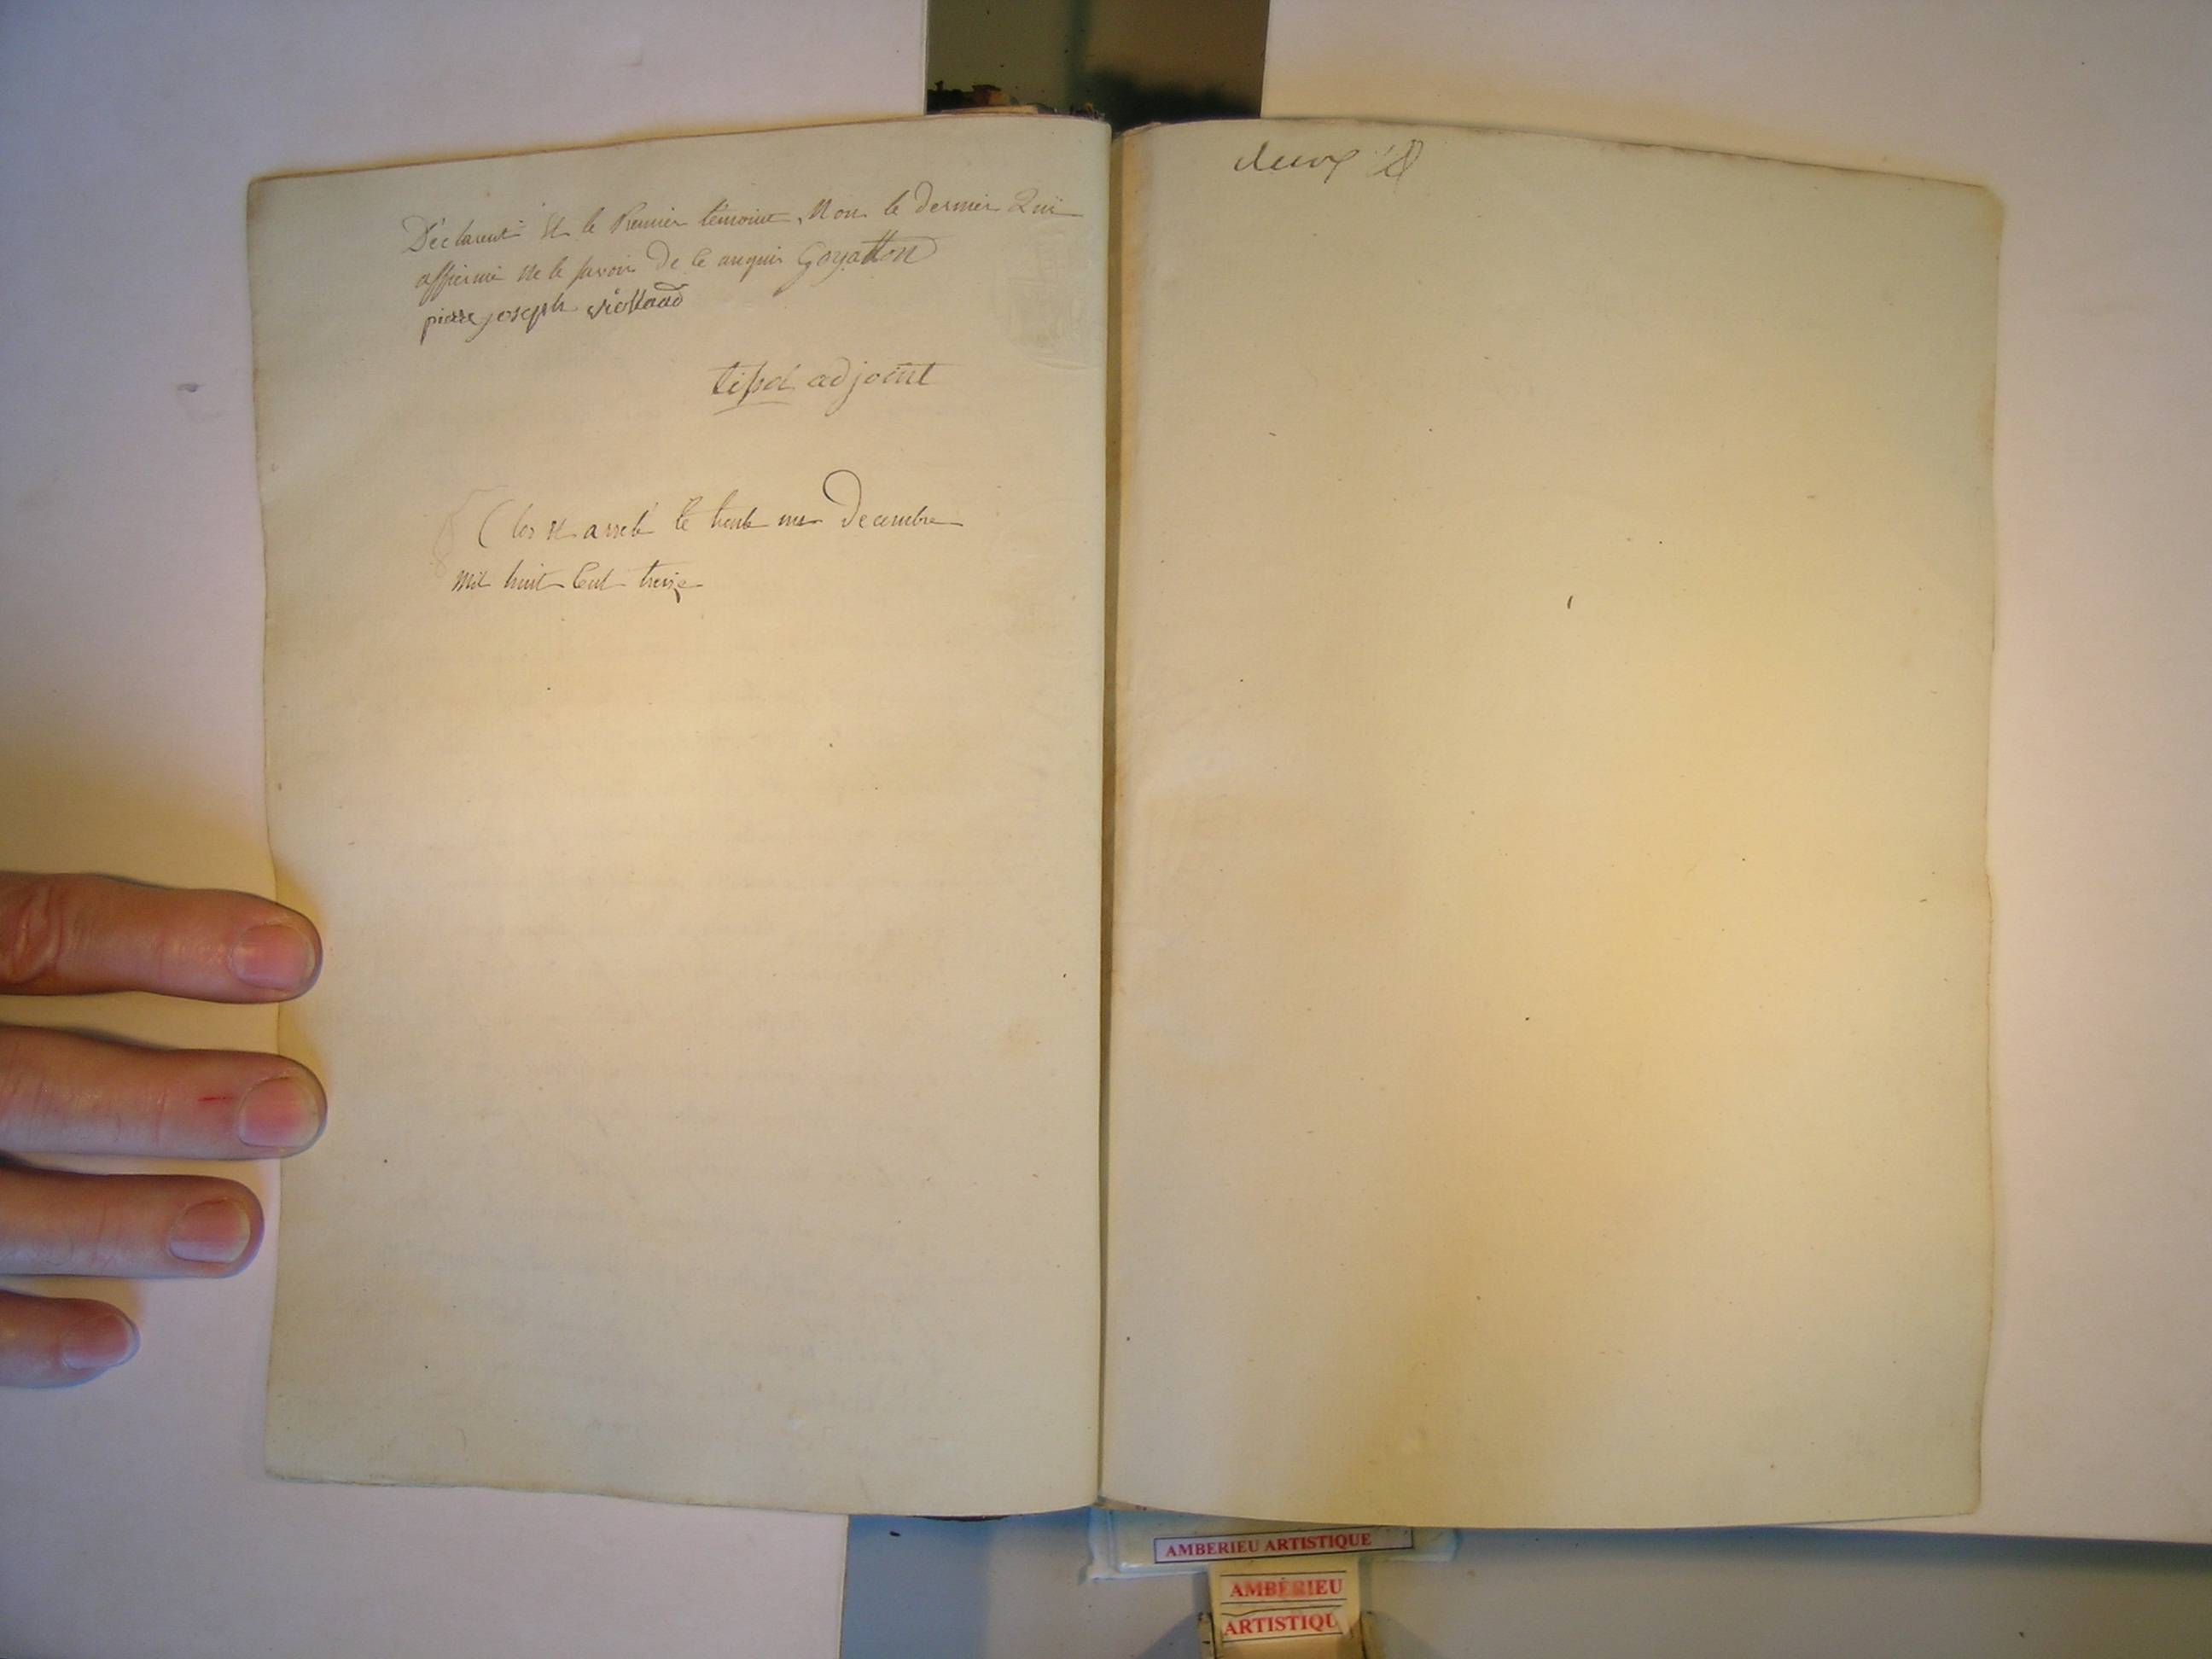 Déclarent et le Premier témoint, Non le dernier Qui
affirmé ne le savoir de ce enquis Goyatton
pierre joseph viollaud
tissot adjoint
Clos et arreté le trente un Decembre
mil huit Cent treize
deux
AMBERIEU ARTISTIQUE
AMBERIEU
ARTISTIQU